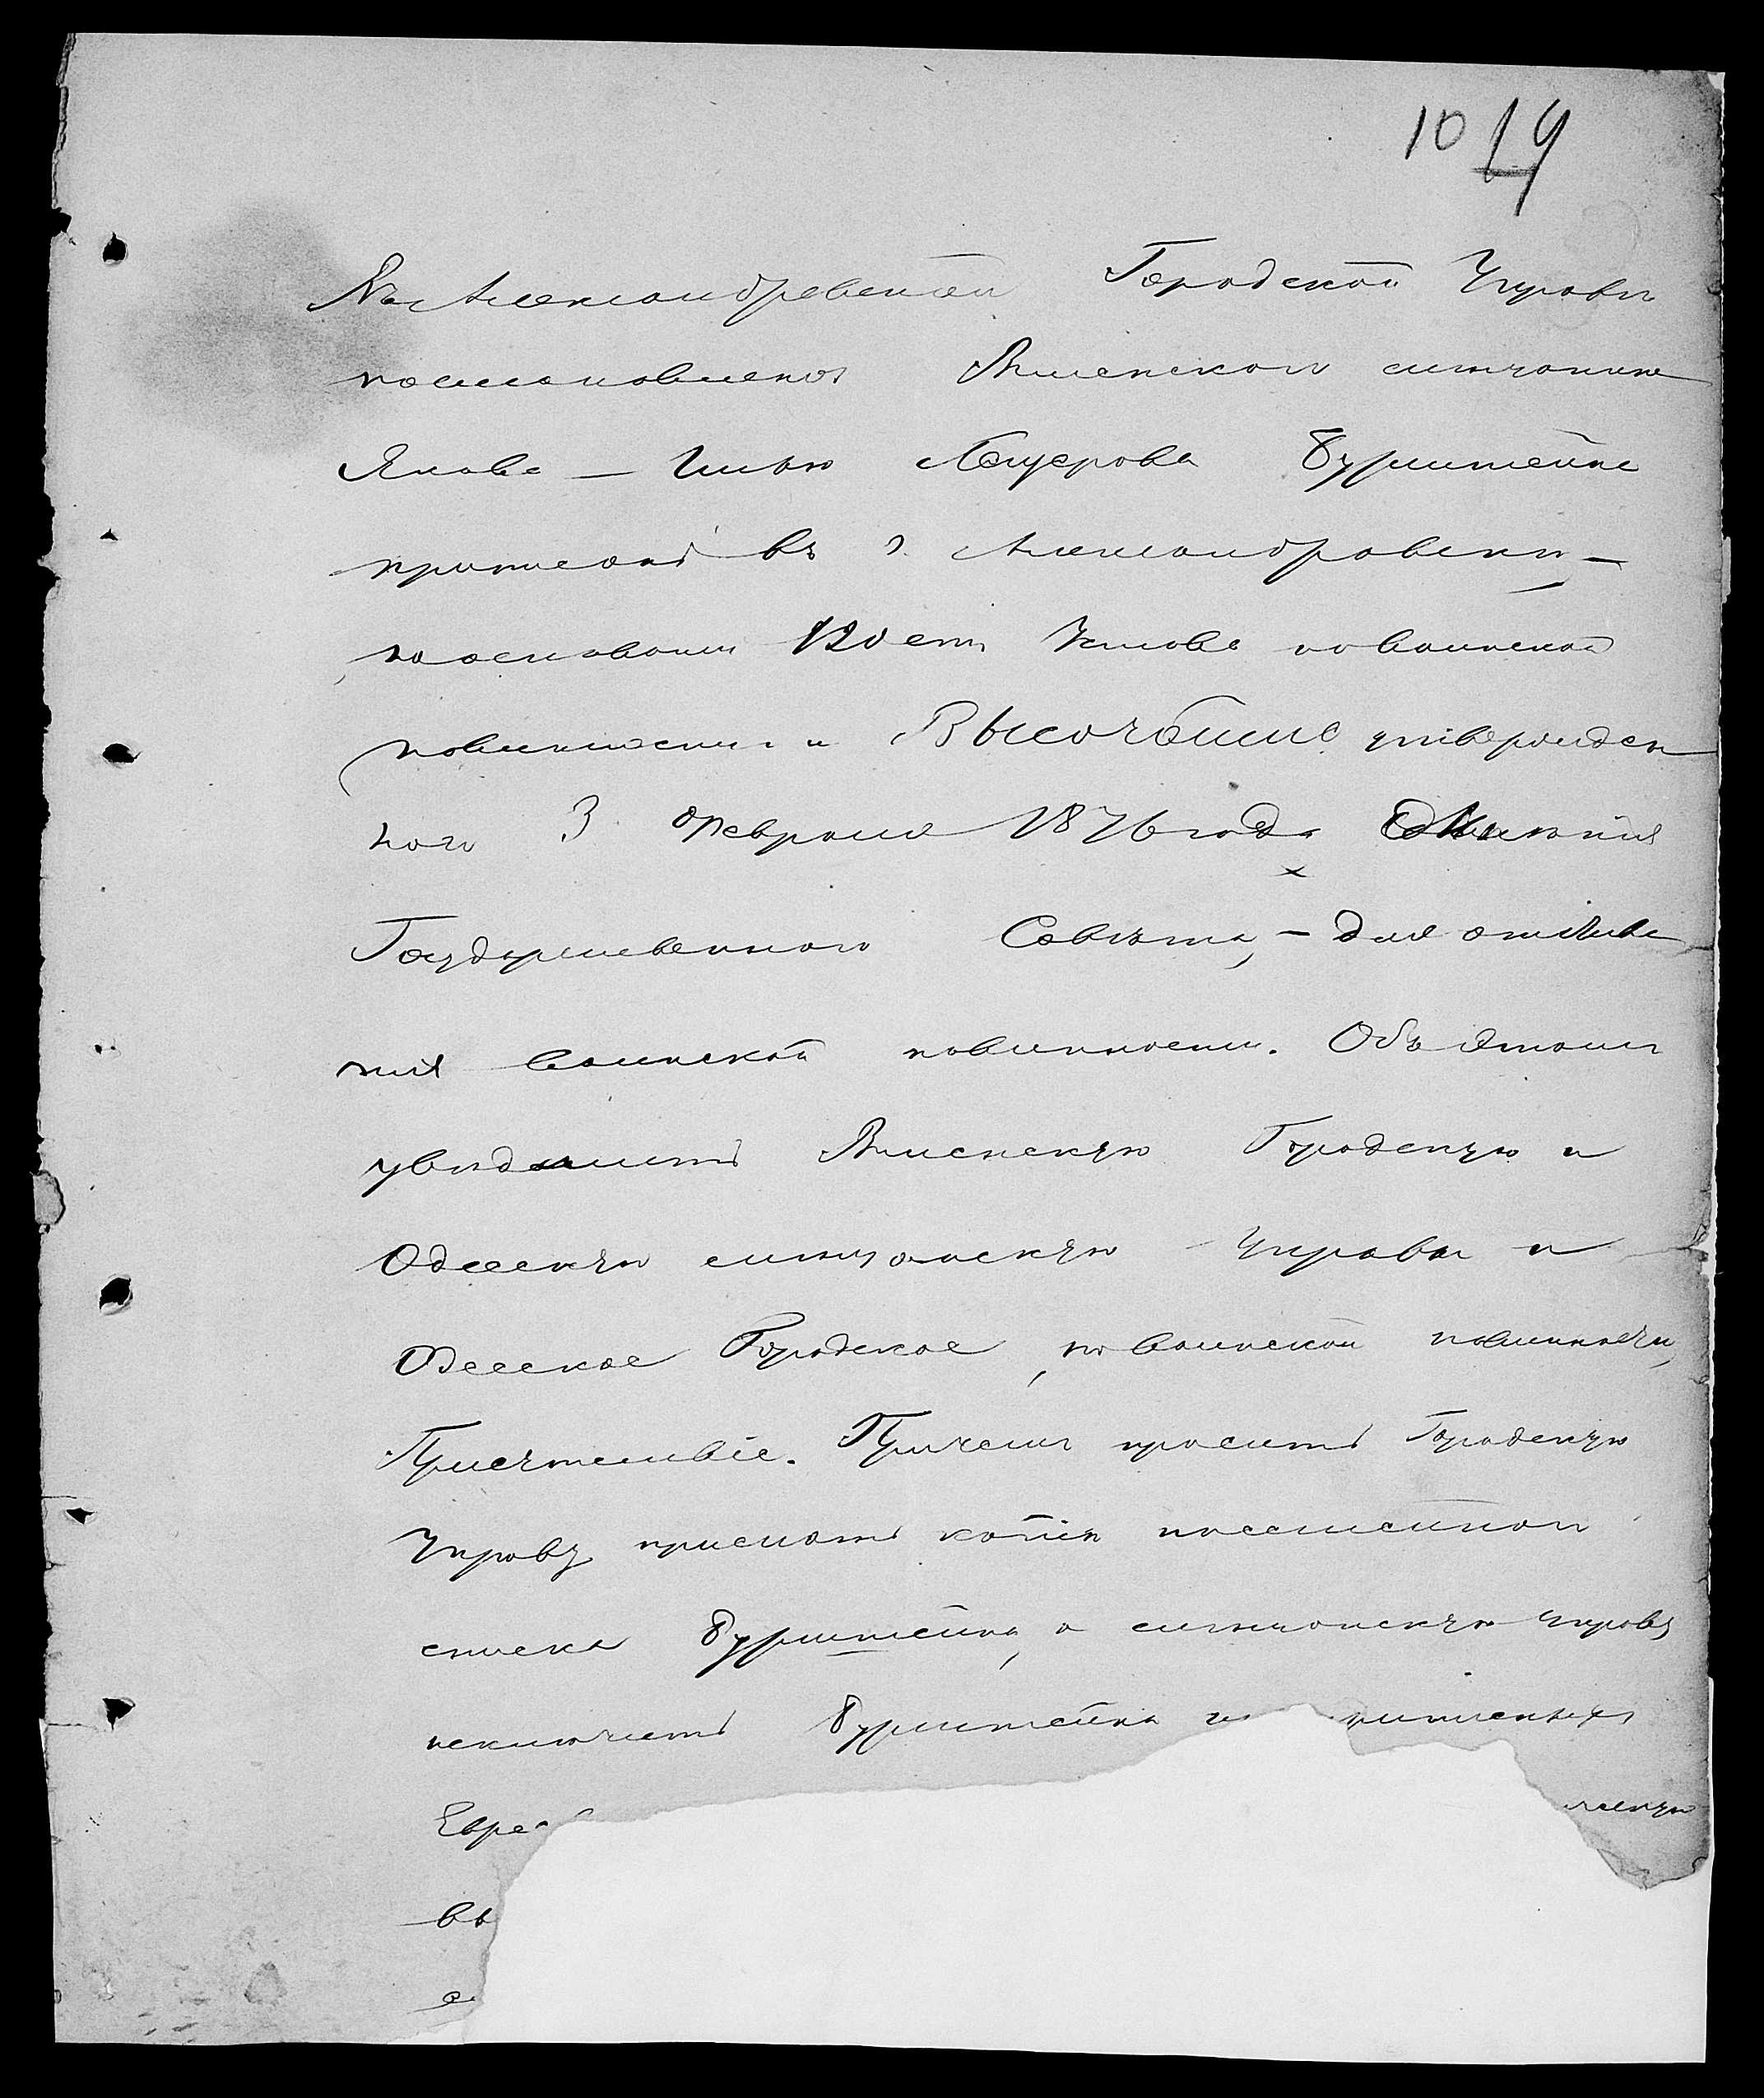 10 19
Въ Александровской Городской Управѣ
постановлено Виленского мѣщанина
Якова — Илью Лейзерова Бурштейна
приписать въ г. Александровскѣ, —
на основании 120 ст. Устава о воинской
повинности и Высочайше утвержден
ного 3 Февраля 1876 года Мнѣнія
Государственного Совѣта, — для отбыва
нія воинской повинности. Объ этомъ
увѣдомить Виленскую Городскую и
Одесскую мѣщанскую Управы и
Одесское Городское по воинской повинности
Присутствіе. Причемъ просить Городскую
Управу прислать копію посемейного
списка Бурштейна, а мѣщанскую управу
исключить Бурштейна приписныхъ
Евре
въ